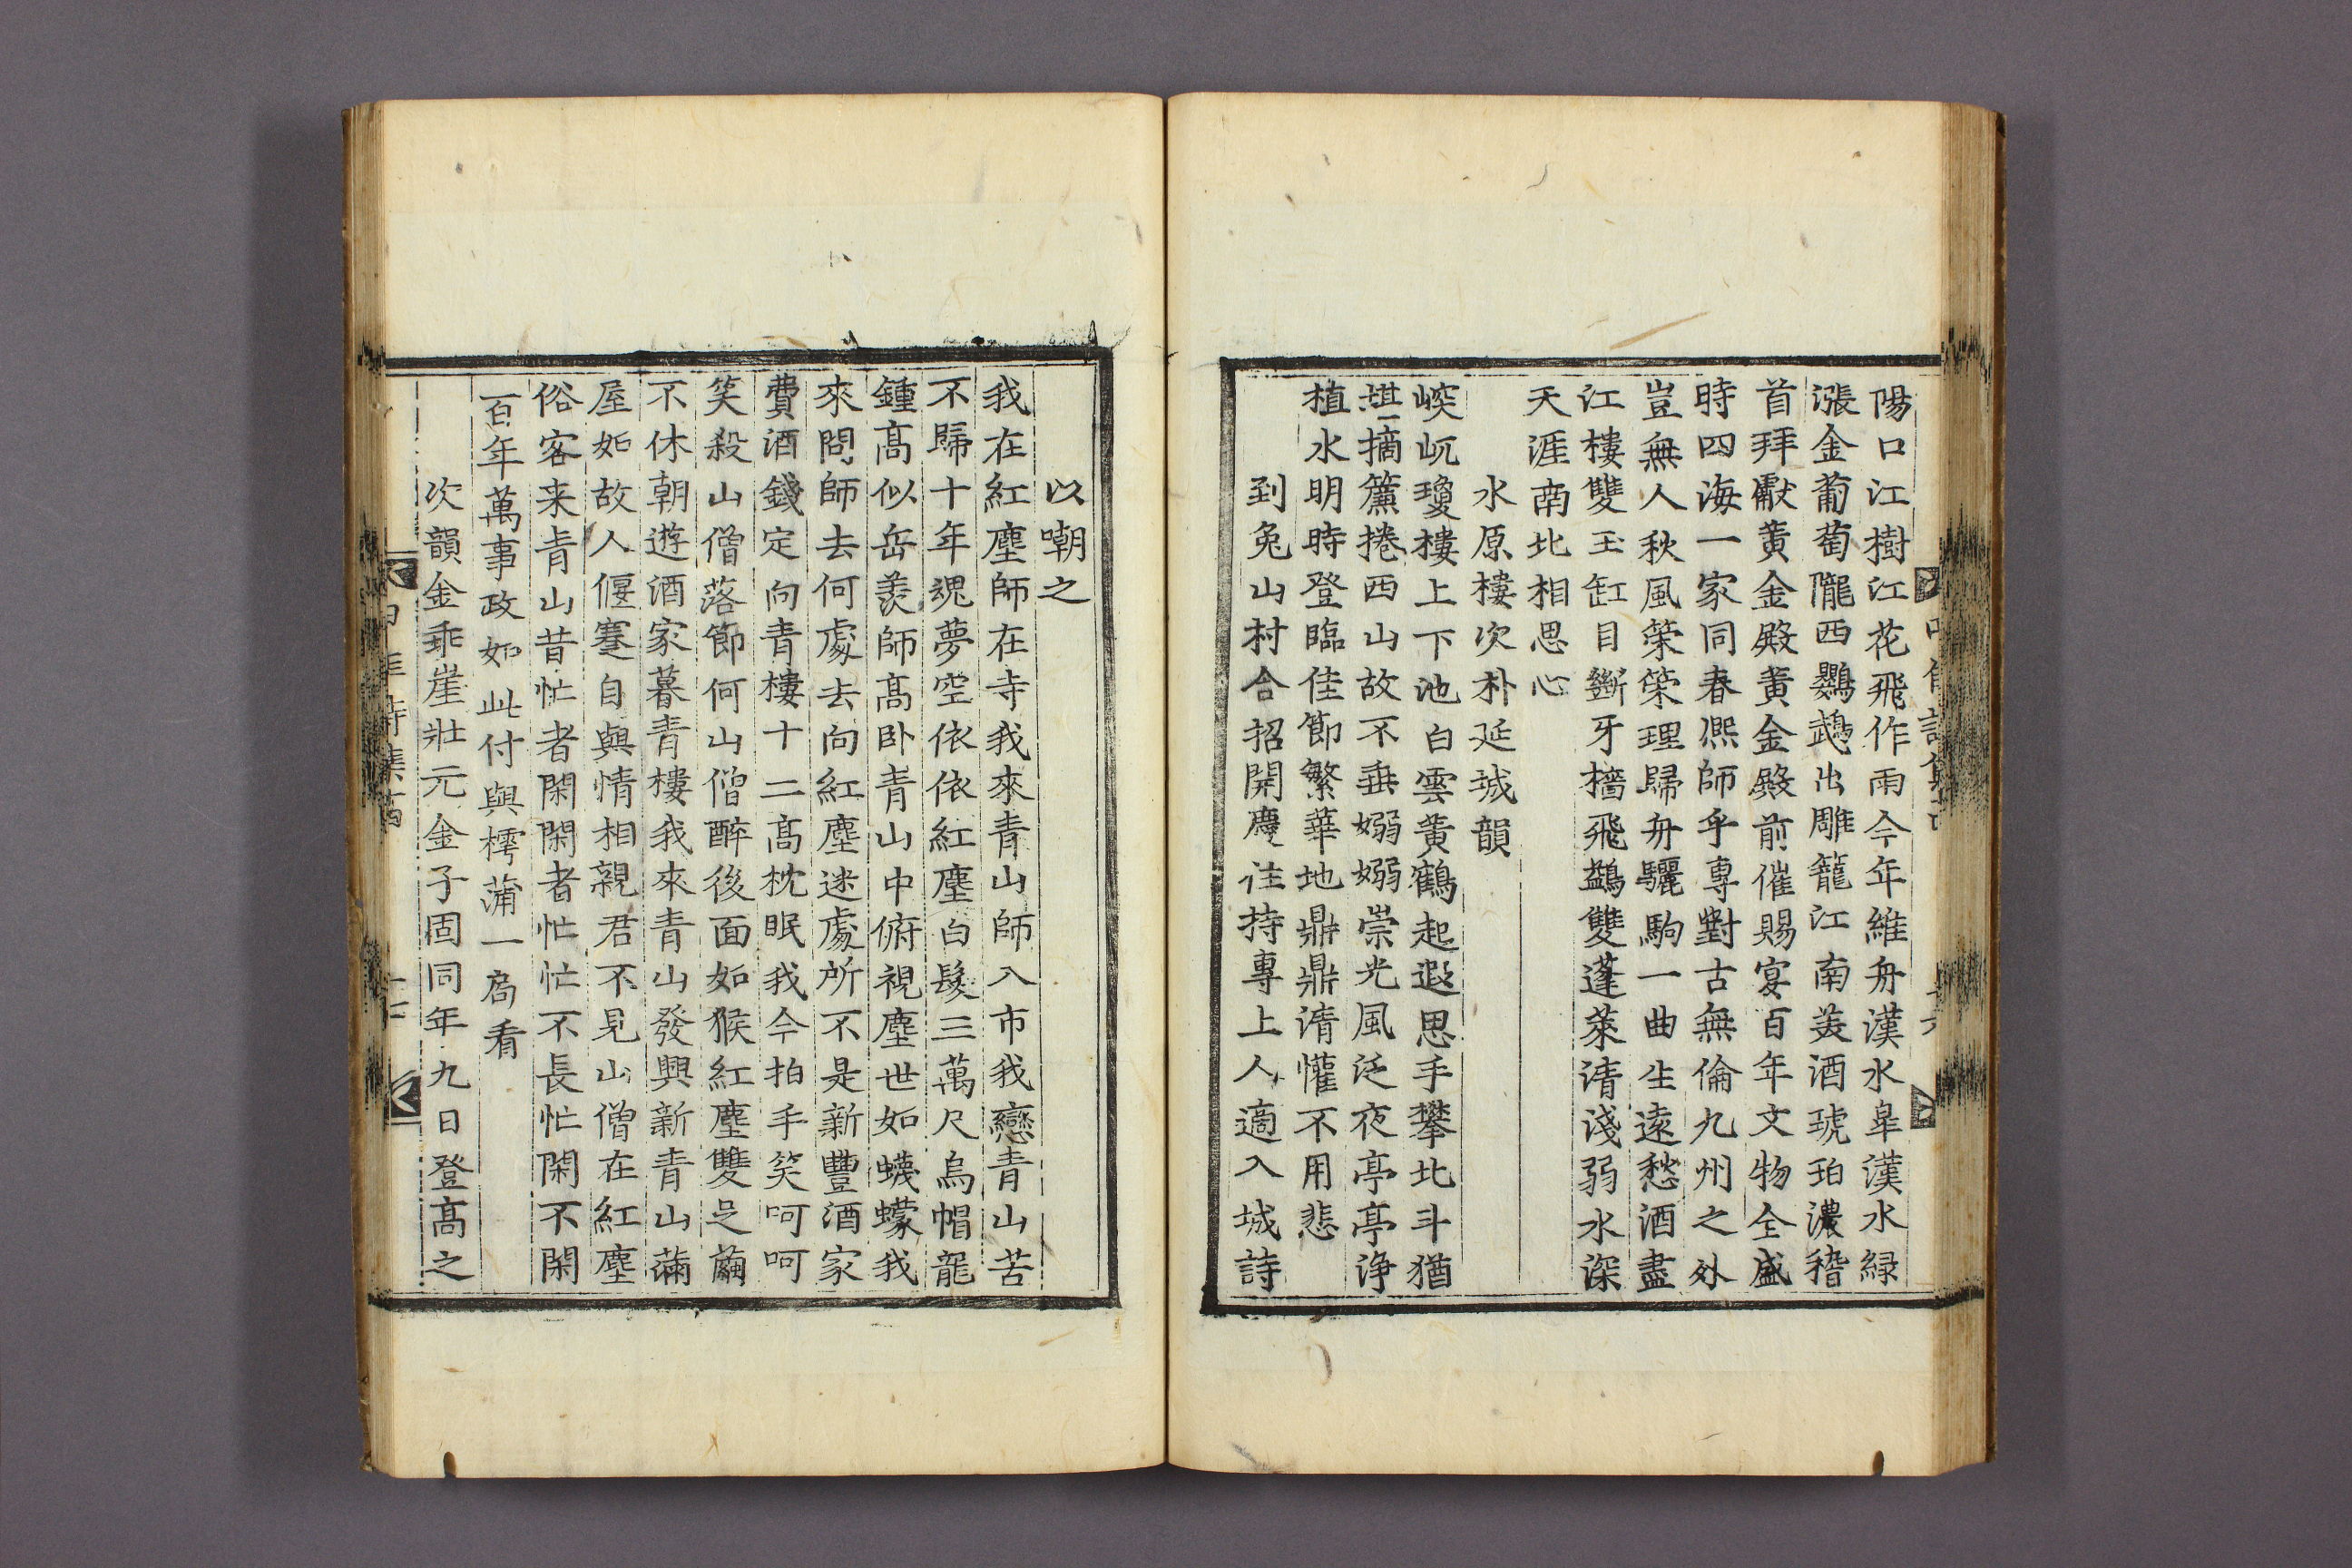 陽口江樹江花飛作雨今年維舟漢水皐漢水緑
漲金葡萄隴西鸚鵡出雕籠江南美酒琥珀濃稽
首拜獻黃金殿黃金殿前催賜宴百年文物全盛
時四海一家同春熙師乎專對古無倫九州之外
豈無人秋風榮榮理歸舟驪駒一曲生遠愁酒盡
江樓雙玉缸目斷牙檣飛鷁雙蓬萊清淺弱水深
天涯南北相思心
水原樓次朴延城韻
崚屼瓊樓上下池白雲黃鶴起遐思手攀北斗猶
堪摘簾捲西山故不垂嫋嫋崇光風泛夜亭亭淨
植水明時登臨佳節繁華地鼎鼎清懽不用悲
到兔山村合招開慶住持專上人適入城詩
以嘲之
我在紅塵師在寺我來青山師入市我戀青山苦
不歸十年魂夢空依依紅塵白髮三萬尺烏帽龍
鍾高似岳羨師高卧青山中俯視塵世如蠛蠓我
來問師去何處去向紅塵迷處所不是新豐酒家
費酒錢定向青樓十二高枕眠我今拍手笑呵呵
笑殺山僧落節何山僧醉後面如猴紅塵雙足繭
不休朝遊酒家暮青樓我來青山發興新青山滿
屋如故人偃蹇自與情相親君不見山僧在紅塵
俗客来青山昔忙者閑閑者忙忙不長忙閑不閑
百年萬事政如此付與樗蒲一局看
次韻金乖崖壯元金子固同年九日登高之